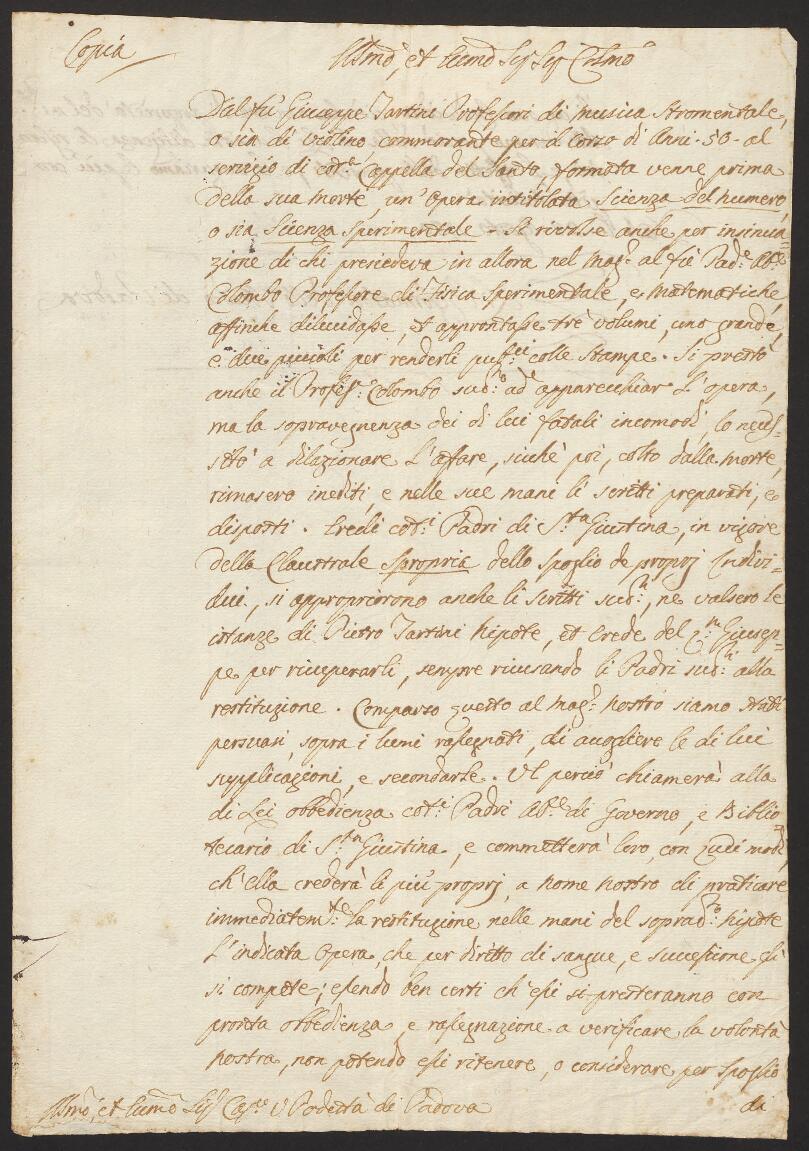 Copia
Illmo, et Eccmo Sigr Sigr Colmo
Dal fù Giuseppe Tartini Professori di Musica Stromentale,
o sia di violino commorante per il corso di Anni 50 al
servizio di cote Cappella del Santo, formata venne prima
della sua morte, un' Opera intitolata Scienza del numero,
o sia Scienza Sperimentale. Si rivolse anche per insinua=
zione di chi presiedeva in allora nel Mago al fù Pade Abe
Colombo Professore di Fisica Sperimentale, e Matematiche,
affinche dilucidasse, et approntasse trè volumi, uno grande,
e due piccoli per renderli pubci colle Stampe. Si prestò
anche il Profesre Colombo sudo ad apparecchiar L'opera,
ma la sopravegnenza dei di lui fatali incomodi, lo neces=
sitò a dilazionare L'affare, sicchè poi, colto dalla morte,
rimasero inediti, e nelle sue mani li scritti preparati, e
disposti. Eredi coti Padri di Sta Giustina, in vigore
della Claustrale Spropria dello spoglio de proprj Indivi=
dui, si appropriorono anche li scritti sudi, ne valsero le
istanze di Pietro Tartini Nipote, et Erede del qm Giusep=
pe per ricuperarli, sempre ricusando li Padri sudi alla
restituzione. Comparso questo al Mago nostro siamo stati
persuasi, sopra i lumi rassegnati, di accogliere le di lui
supplicazioni, e secondarle. VE perciò chiamerà alla
di Lei obbedienza coti Padri Abe di Governo, e Biblio=
tecario di Sta Giustina, e commetterà loro, con que' modi,
ch'ella crederà li più proprj, a nome nostro di praticare
immediatemte la restituzione nelle mani del soprado Nipote
L'indicata Opera, che per diritto di sangue, e successione gli
si compete; essendo ben certi ch'essi si presteranno con
pronta obbedienza, e rassegnazione a verificare la volontà
nostra, non potendo essi ritenere, o considerare per spoglio
di
Illmo, et Eccmo Sigr Capo V Podestà di Padova